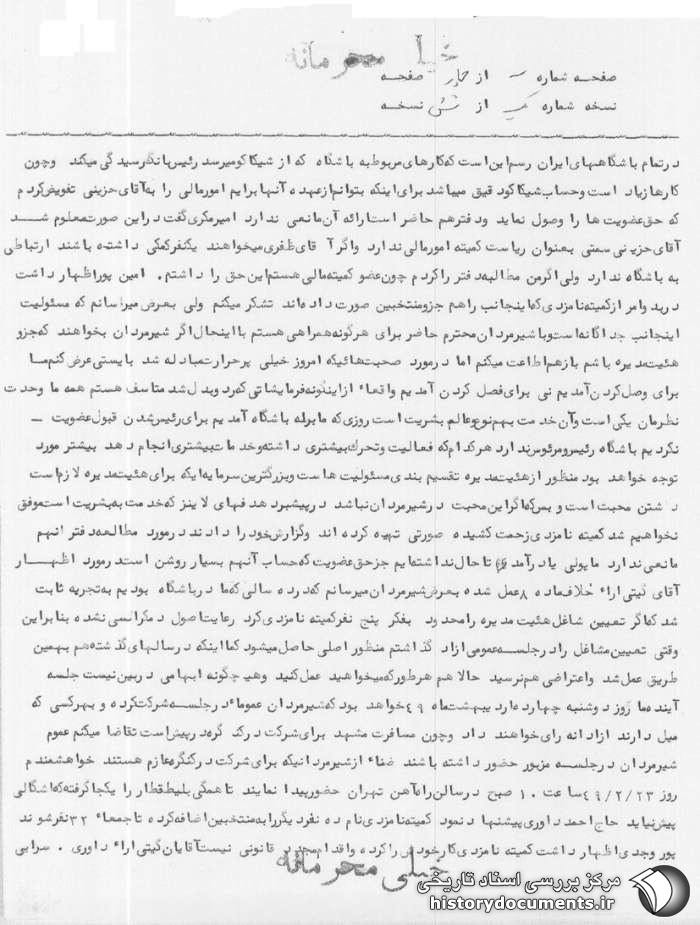 خیلی محرمانه
صفحه شماره ۳ از چهار صفحه
نسخه شماره یک از شش نسخه
درتمام باشگاههای ایران رسم این است که کارهای مربوط به باشگاه که از شیکاگو میرسد رئیس باند رسیدگی میکند وچون
کارها زیاد است وحساب شیکاگو دقیق میباشد برای اینکه بتوانم از عهده آنها برایم امورمالی را به آقای حزینی تفویض کردم
که حق عضویت ها را وصول نماید و دفترهم حاضر است ارائه آن مانعی ندارد امیرمکری گفت در این صورت معلوم شد
آقای حزینی سمتی بعنوان ریاست کمیته امورمالی ندارد واگر آقای ظفری میخواهند یکنفر کمکی داشته باشند ارتباطی
به باشگاه ندارد ولی اگر من مطالبه دفتر را کردم چون عضو کمیته مالی هستم این حق را داشتم . امین پور اظهار داشت
دربد وامر از کمیته نامزدی که اینجانب را هم جزو منتخبین صورت داده اند تشکر میکنم ولی بعرض میرسانم که مسئولیت
اینجانب جداگانه است وبا شیرمردان محترم حاضر برای هرگونه همراهی هستم با اینحال اگر شیرمردان بخواهند که جزو
هئیت مدیره باشم بازهم اطاعت میکنم اما در مورد صحبت هائیکه امروز خیلی پرحرارت مبادله شد بایستی عرض کنم ما
برای وصل کردن آمدیم نی برای فصل کردن آمدیم واقعاء از اینگونه فرمایشاتی که رد وبدل شد متاسف هستم همه ما وحدت
نظرمان یکی است وآن خدمت بهم نوع وعالم بشریت است روزی که ما برله باشگاه آمدیم برای رئیس شدن قبول عضویت ـ
نکردیم باشگاه رئیس ومرئوس ندارد هرکدام که فعالیت وتحرک بیشتری داشته وخدمات بیشتری انجام دهد بیشتر مورد
توجه خواهد بود منظور از هئیت مدیره تقسیم بندی مسئولیت هاست وبزرگترین سرمایه ایکه برای هئیت مدیره لازم است
داشتن محبت است و بس که اگر این محبت در شیرمردان نباشد در پیشبرد هدفهای لاینز که خدمت به بشریت است موفق
نخواهیم شد کمیته نامزدی زحمت کشیده صورتی تهیه کرده اند وگزارش خود را دادند در مورد مطالعه دفتر انهم
مانعی ندارد ما پولی یا درآمدی تا حال نداشته ایم جز حق عضویت که حساب آنهم بسیار روشن است در مورد اظهار
آقای گیتی اراء خلاف ماده ۸ عمل شده بعرض شیرمردان میرسانم که در ده سالی که ما در باشگاه بودیم به تجربه ثابت
شد که اگر تعیین شاغل هئیت مدیره را محدود بفکر پنج نفر کمیته نامزدی کرد رعایت اصول دمکراسی نشده بنابراین
وقتی تعیین مشاغل را در جلسه عمومی ازاد گذاشتم منظور اصلی حاصل میشود کما اینکه در سالهای گذشته هم بهمین
طریق عمل شد واعتراضی هم نرسید حالا هم هرطور که میخواهید عمل کنید وهیچ گونه ابهامی در بین نیست جلسه
آینده ما روز دوشنبه چهارده اردیبهشت ماه ۴۹ خواهد بود که شیرمردان عموماء در جلسه شرکت کرده و بهرکسی که
میل دارند ازادانه رای خواهند داد وچون مسافرت مشهد برای شرکت در کنگره در پیش است تقاضا میکنم عموم
شیرمردان در جلسه مزبور حضور داشته باشند ضمناء از شیرمردانیکه برای شرکت در کنگره عازم هستند خواهشمندم
روز ۴۹/۲/۲۳ ساعت ۱۰ صبح در سالن راه آهن تهران حضور پیدا نمایند تا همگی بلیط قطار را یکجا گرفته که اشکالی
پیش نیاید حاج احمد داوری پیشنهاد نمود کمیته نامزدی نام ده نفر دیگر را به منتخبین اضافه کرده تا جمعاء ۳۲ نفر شوند
پور وجدی اظهار داشت کمیته نامزدی کار خودش را کرده واقدام مجدد قانونی نیست آقایان گیتی اراء داوری . سرابی
خیلی محرمانه
مرکز بررسی اسناد تاریخی
historydocuments.ir